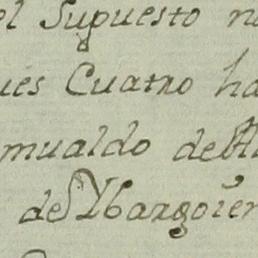 el Supuesto n
ues Cuatro ha
mualdo de
de Ybargoien